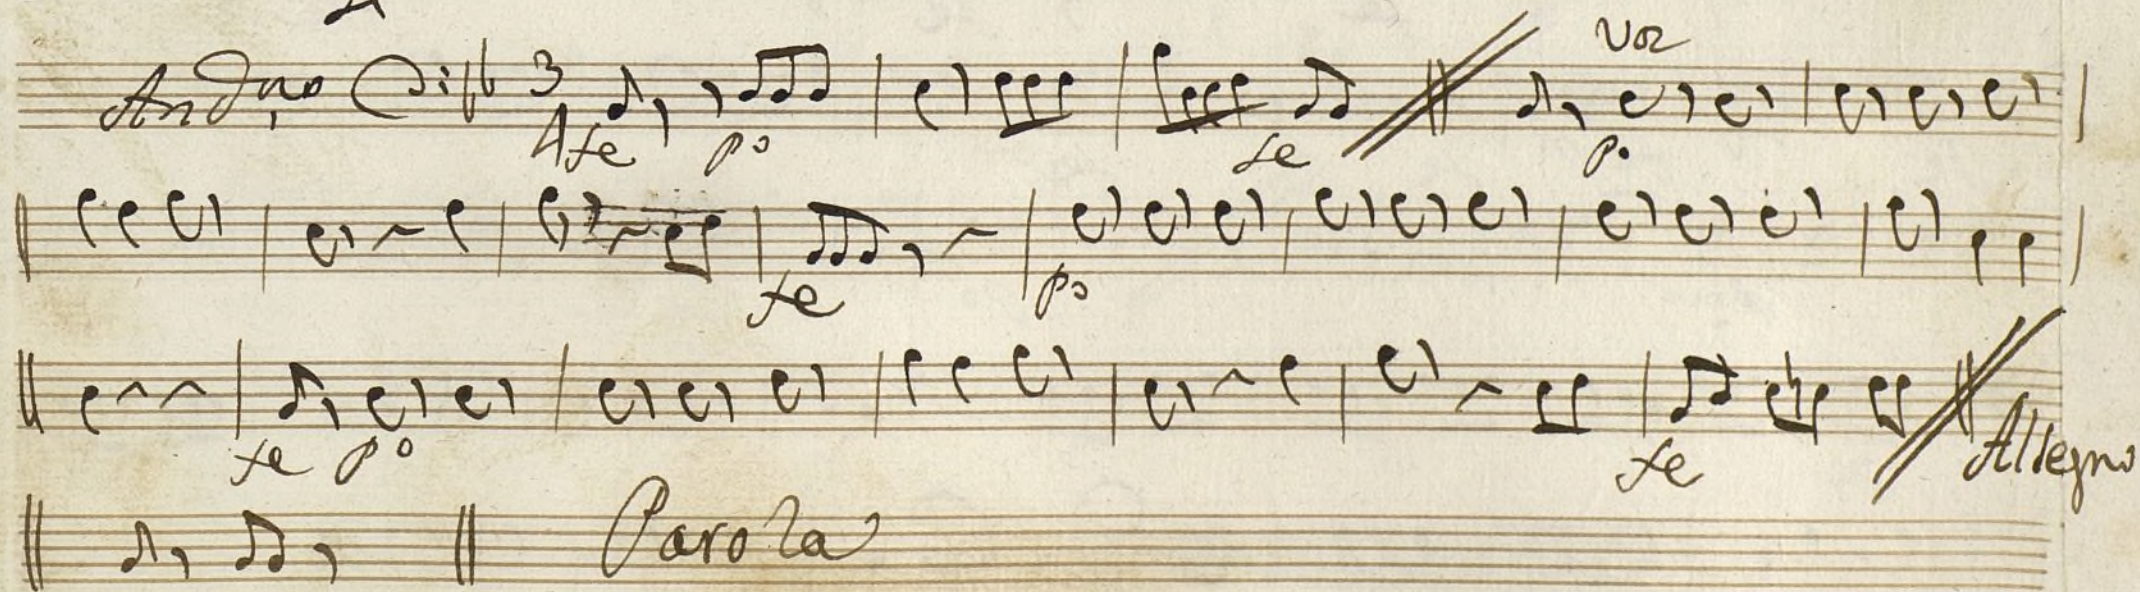 Voz
Andno 3
4 fe po fe p.
fe po
fe po fe Allegro
Parola